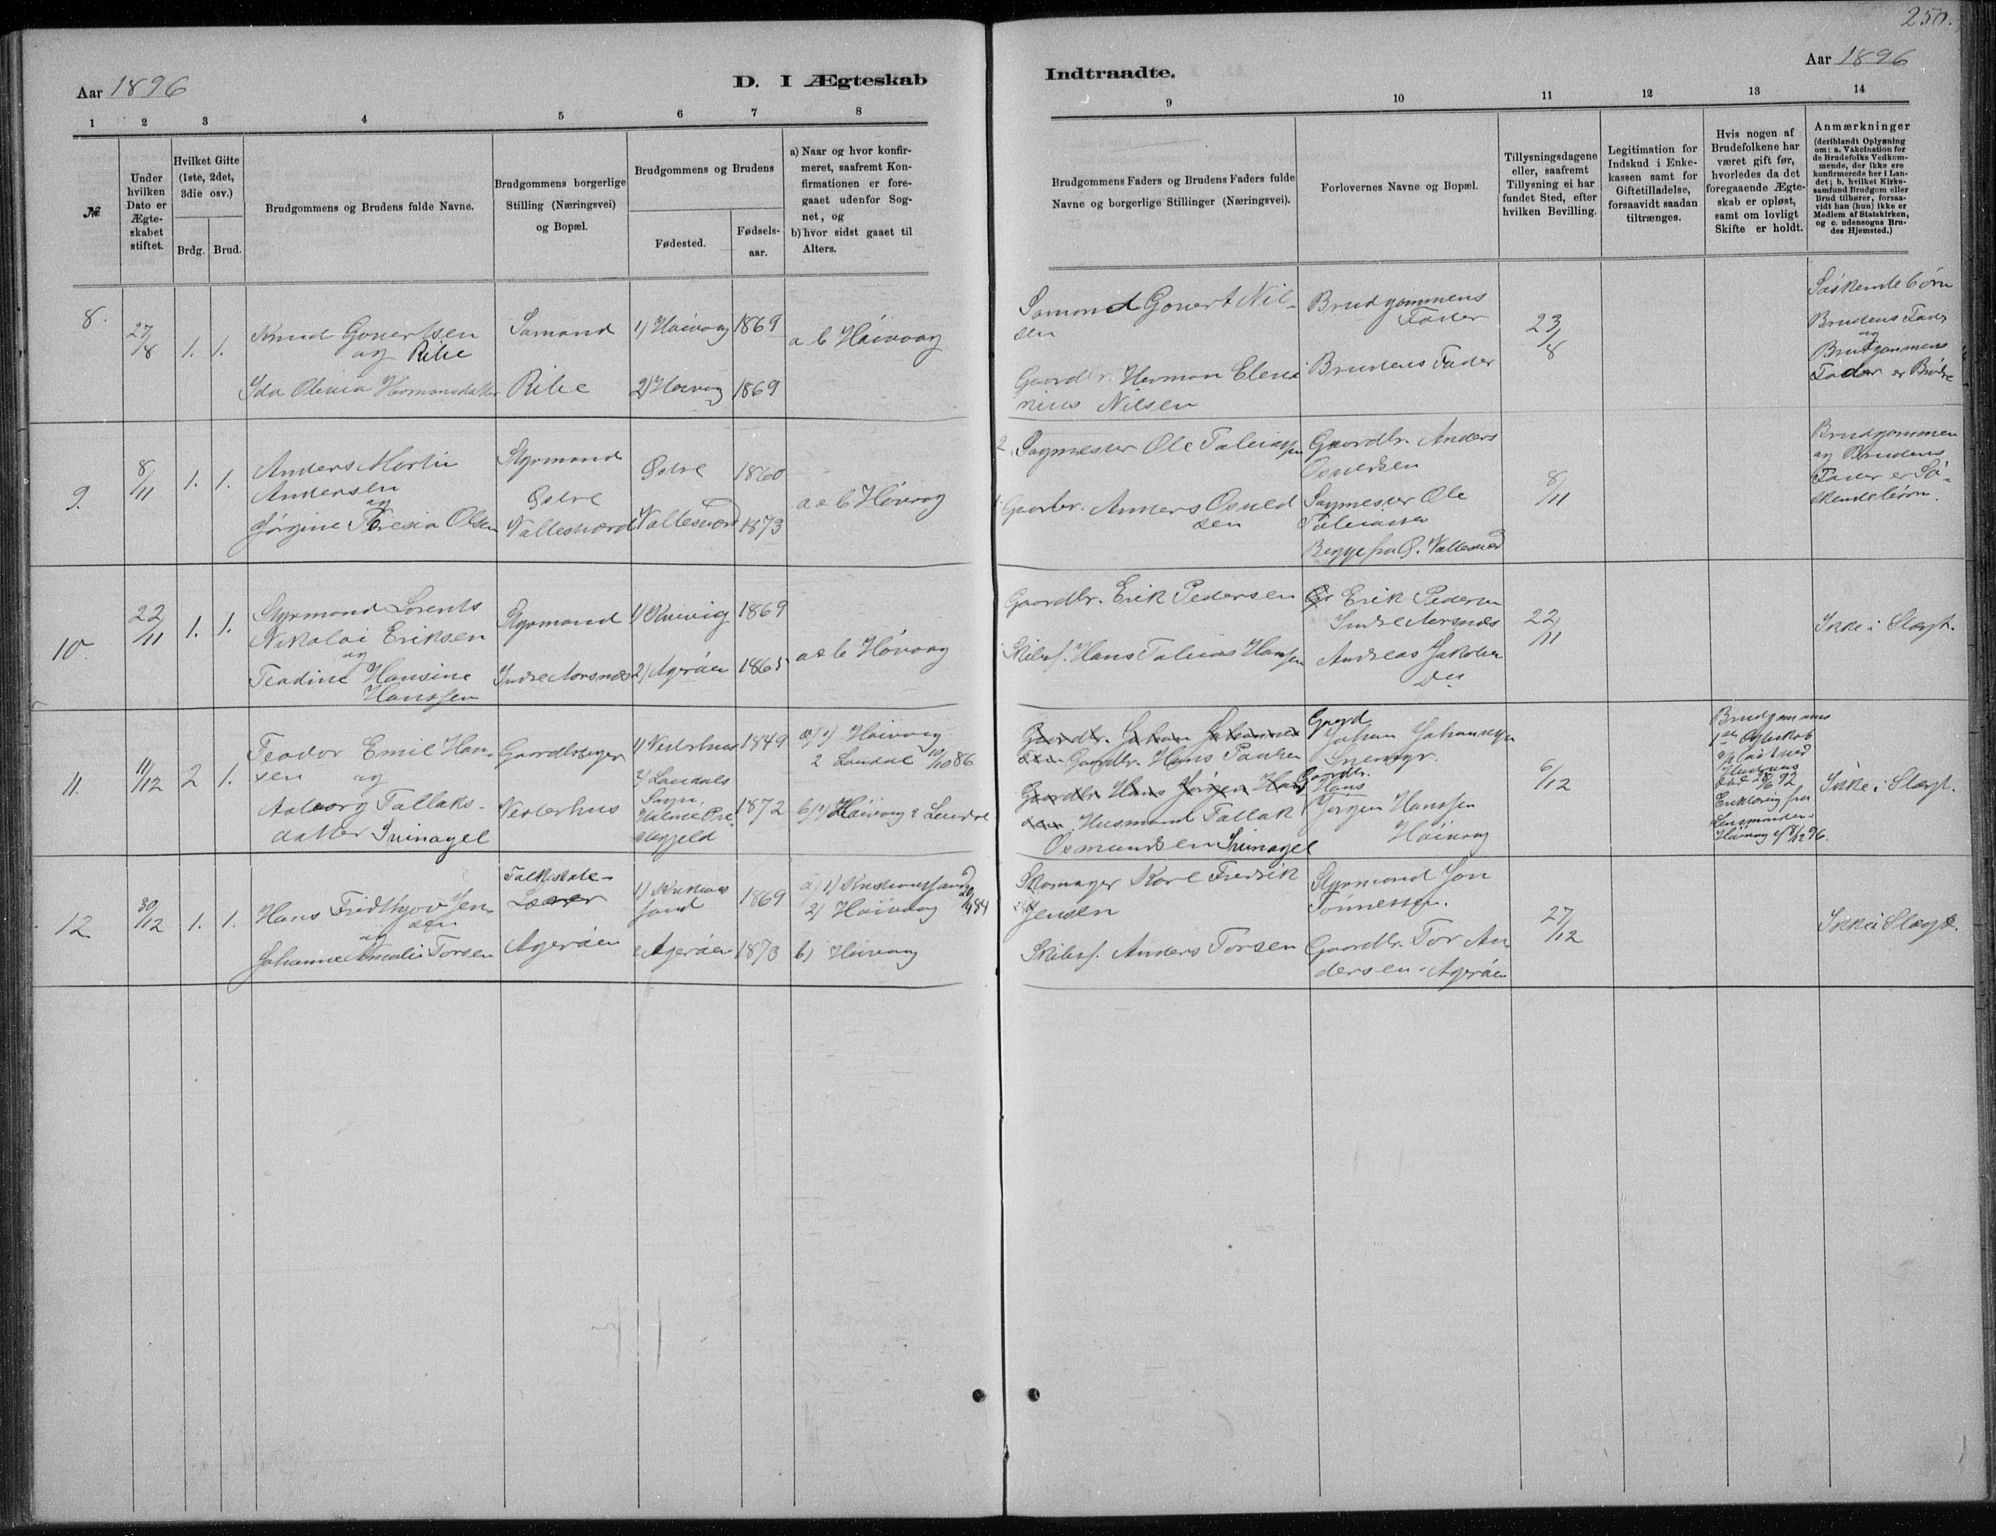 250.
Aar 1896
D. I Ægteskab
Indtraadte.
Aar 1896
1 2 3 4 5 6 7 8
9 10 11 12 13 14
№
Under hvilken Dato er Ægteskabet stiftet.
Hvilket Gifte (1ste, 2det, 3die osv.)
Brdg. Brud.
Brudgommens og Brudens fulde Navne.
Brudgommens borgerlige Stilling (Næringsvei) og Bopæl.
Brudgommens og Brudens
Fødested.
Fødselsaar.
a) Naar og hvor konfirmeret, saafremt Konfirmationen er foregaaet udenfor Sognet, og
b) hvor sidst gaaet til Alters.
Brudgommens Faders og Brudens Faders fulde Navne og borgerlige Stillinger (Næringsvei).
Forlovernes Navne og Bopæl.
Tillysningsdagene eller, saafremt Tillysning ei har fundet Sted, efter hvilken Bevilling.
Legitimation for Indskud i Enkekassen samt for Giftetilladelse, forsaavidt saadan tiltrænges.
Hvis nogen af Brudefolkene har været gift før, hvorledes da det foregaaende Ægteskab er opløst, samt om lovligt Skifte er holdt.
Anmærkninger
(deriblandt Oplysning om: a. Vakcination for de Brudefolks Vedkommende, der ikke ere konfirmerede her i Landet; b. hvilket Kirkesamfund Brudgom eller Brud tilhører, forsaavidt han (hun) ikke er Medlem af Statskirken, og c. udensogns Brudes Hjemsted.)
8. 27/8 1. 1.
Knud Govertsen
og Ribe
Ida Olivia Hermansdatter
Sømand
Ribe
1) Høivaag 1869
2) Høivaag 1869
a b Høivaag
Sømand Govert Nilsen
Gaardbr. Herman Eleninius Nilsen
Brudgommens Fader
Brudens Fader
23/8
Søskendebørn
Brudens Fader
og
Brudgommens
Fader er Brødre
9. 8/11 1. 1.
Anders Martin
Andersen
og
Jørgine Teresia Olsen
Styrmand
Østre
Vallesværd
Østre 1860
Vallesværd 1873
a & b Høvaag
2 Sagmester Ole Taleiassen
1 Gaarbr. Anners Osuldsen
Gaardbr. Anders
Osuldsen
Sagmester Ole
Taleiassen
Begge fra Ø. Vallesværd
8/11
Brudgommen
og Brudens
Fader er Søskendebørn.
10. 22/11 1. 1.
Styrmand Lorents
Nikolai Eriksen
og
Teodine Hansine
Hanssen
Styrmand
Indre Aarsnæs
1) Kvivig 1869
2) Agerøen 1865
a & b Høvaag
Gaardbr. Erik Pedersen
Skibsf. Hans Taleias Hansen
Erik Pedersen
Indre Aarsnæs
Andreas Jakobsen
Do
22/11
Ikke i Slægt.
11. 11/12 2 1.
Teodor Emil Hansen
og
Aaborg Tallaksdatter Svinagel
Gaardbruger
Vesterhus
1) Vesterhus 1849
2) Laudals
Sogn,
Holme Præstegjeld 1872
a) 1) Høivaag
2 Laudal 10/10 86
b) 1) Høivaag 2 Laudal
Gaardbr. Johan Johannessen
Gaardbr. Hans Paulsen
Gaardbr. Hans Jørgen Hanssen
Husmand Tallak
Osmundsen Svinagel
Gaard
Johan Johannessen
Snemyr.
Gaardbr.
Hans
Jørgen Hanssen
Høivaag
6/12
Brudgommens
1ste Ægteskab
opløst ved
Hustruens
Død 28/6 92
Erklæring fra
Lensmanden
Høivaag 8/12 96.
Ikke i Slægt.
12 30/12 1. 1.
Hans Fridthjov Jensen
og
Johanne Amalie Torsen
Folkeskole-
Lærer
Agerøen
1) Kristianssand 1869
2 Agerøen 1873
a) 1) Kristianssand
2) Høivaag
b) Høivaag
Skomager Karl Fredrik
Jensen
Skibsf. Anders Torsen
Styrmand Jon
Tønnessen.
Gaardbr. Tor Andersen - Agerøen
27/12
Ikke i Slægt.